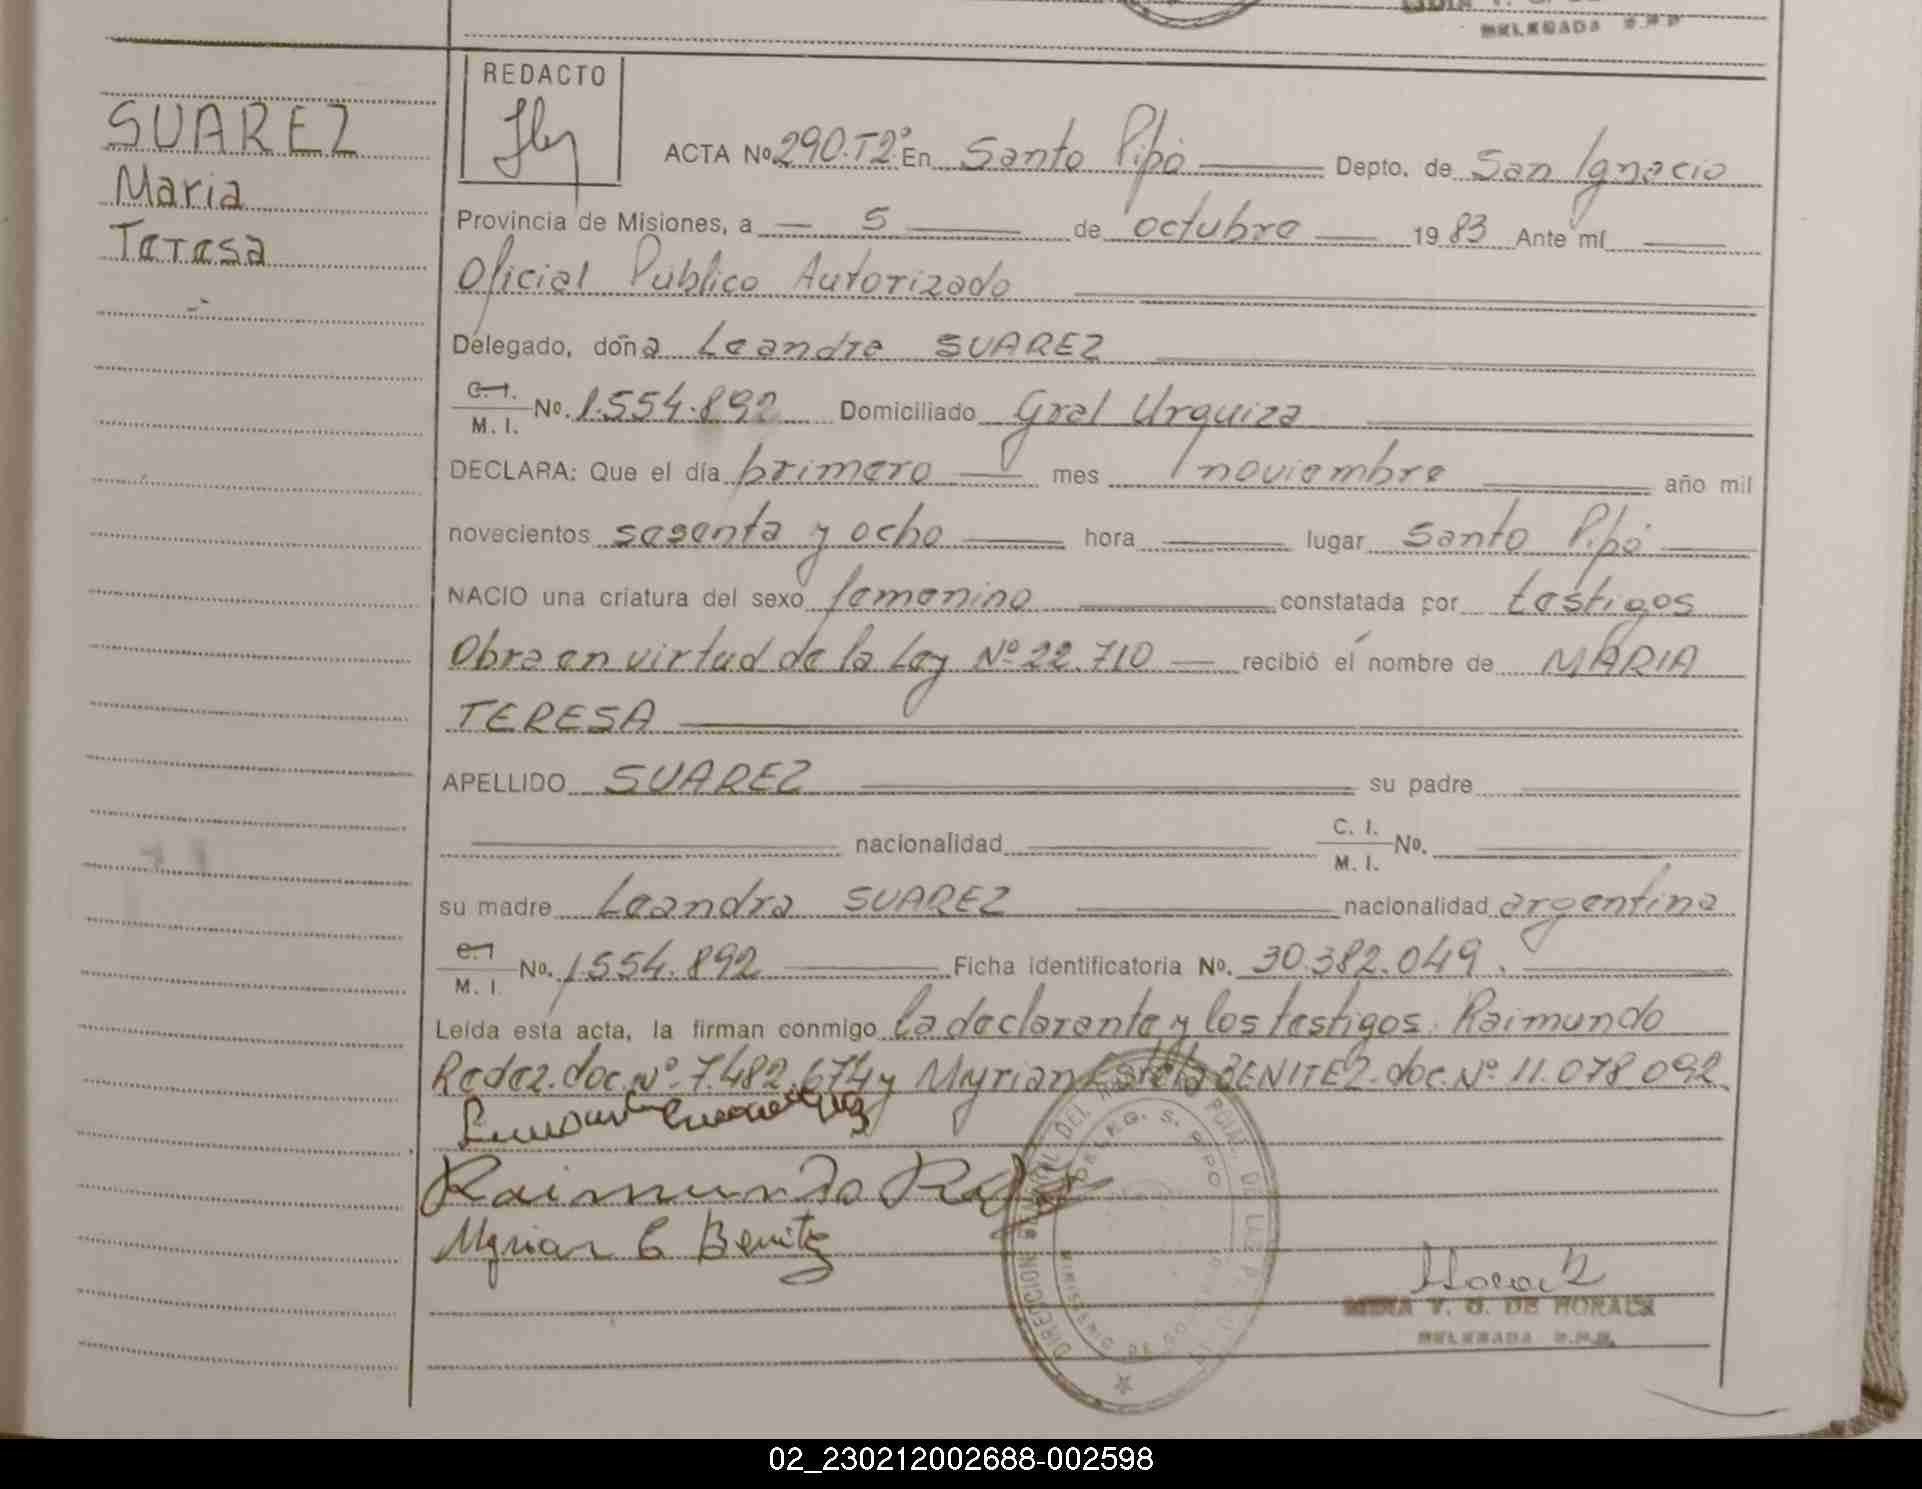 DELEGADA R.P.P.
SUAREZ
Maria
Teresa
REDACTO
ACTA Nº 290.T2º En Santo Pipó Depto. de San Ignacio
Provincia de Misiones, a 5 de octubre 1983 Ante mí
Oficial Público Autorizado
Delegado, doña Leandra SUAREZ
C.I. M.I. No. 1.554.892 Domiciliado Gral Urquiza
DECLARA: Que el día primero mes noviembre año mil
novecientos sesenta y ocho hora lugar Santo Pipó
NACIO una criatura del sexo femenino constatada por testigos
Obra en virtud de la Ley Nº 22.710 recibió el nombre de MARIA
TERESA
APELLIDO SUAREZ su padre
nacionalidad C. I. M. I. No.
su madre Leandra SUAREZ nacionalidad argentina
C.I M. I No. 1.554.892 Ficha identificatoria No. 30.382.049.
Leída esta acta, la firman conmigo la declarante y los testigos: Raimundo
Redez. doc. Nº 7.482.674 y Myrian Estela BENITEZ. doc. Nº 11.078.092
Raimundo
Myrian E Benitez
DELEG. S. PIPO
V. G. DE HORACK
DELEGADA R.P.P.
02_230212002688-002598